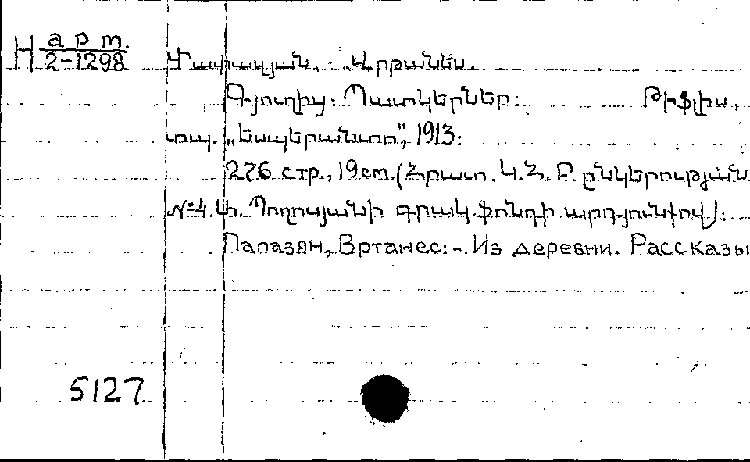 Н арт.
2-1298
Փափազյան, Վրթանես.
Գյուղից: Պատկերներ: Թիֆլիս,
տպ. „Էսպերանտո", 1913:
276 стр., 19 см. (Հրատ. Կ. Հ. Բ. ընկերության
№ 4. Պողոսյանի գրակ. ֆոնդի արդյունքով):
Папазян, Вртанес: - Из деревни. Рассказы
5127